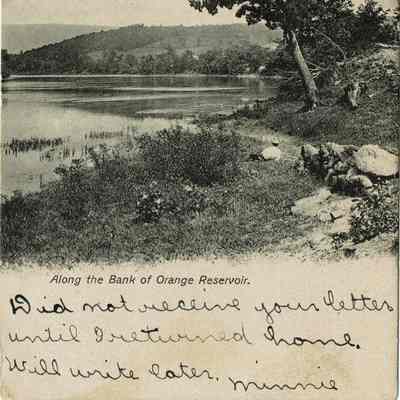 Along the Bank of Orange Reservoir.
Did not receive your letter
until I returned home.
Will write later. Minnie